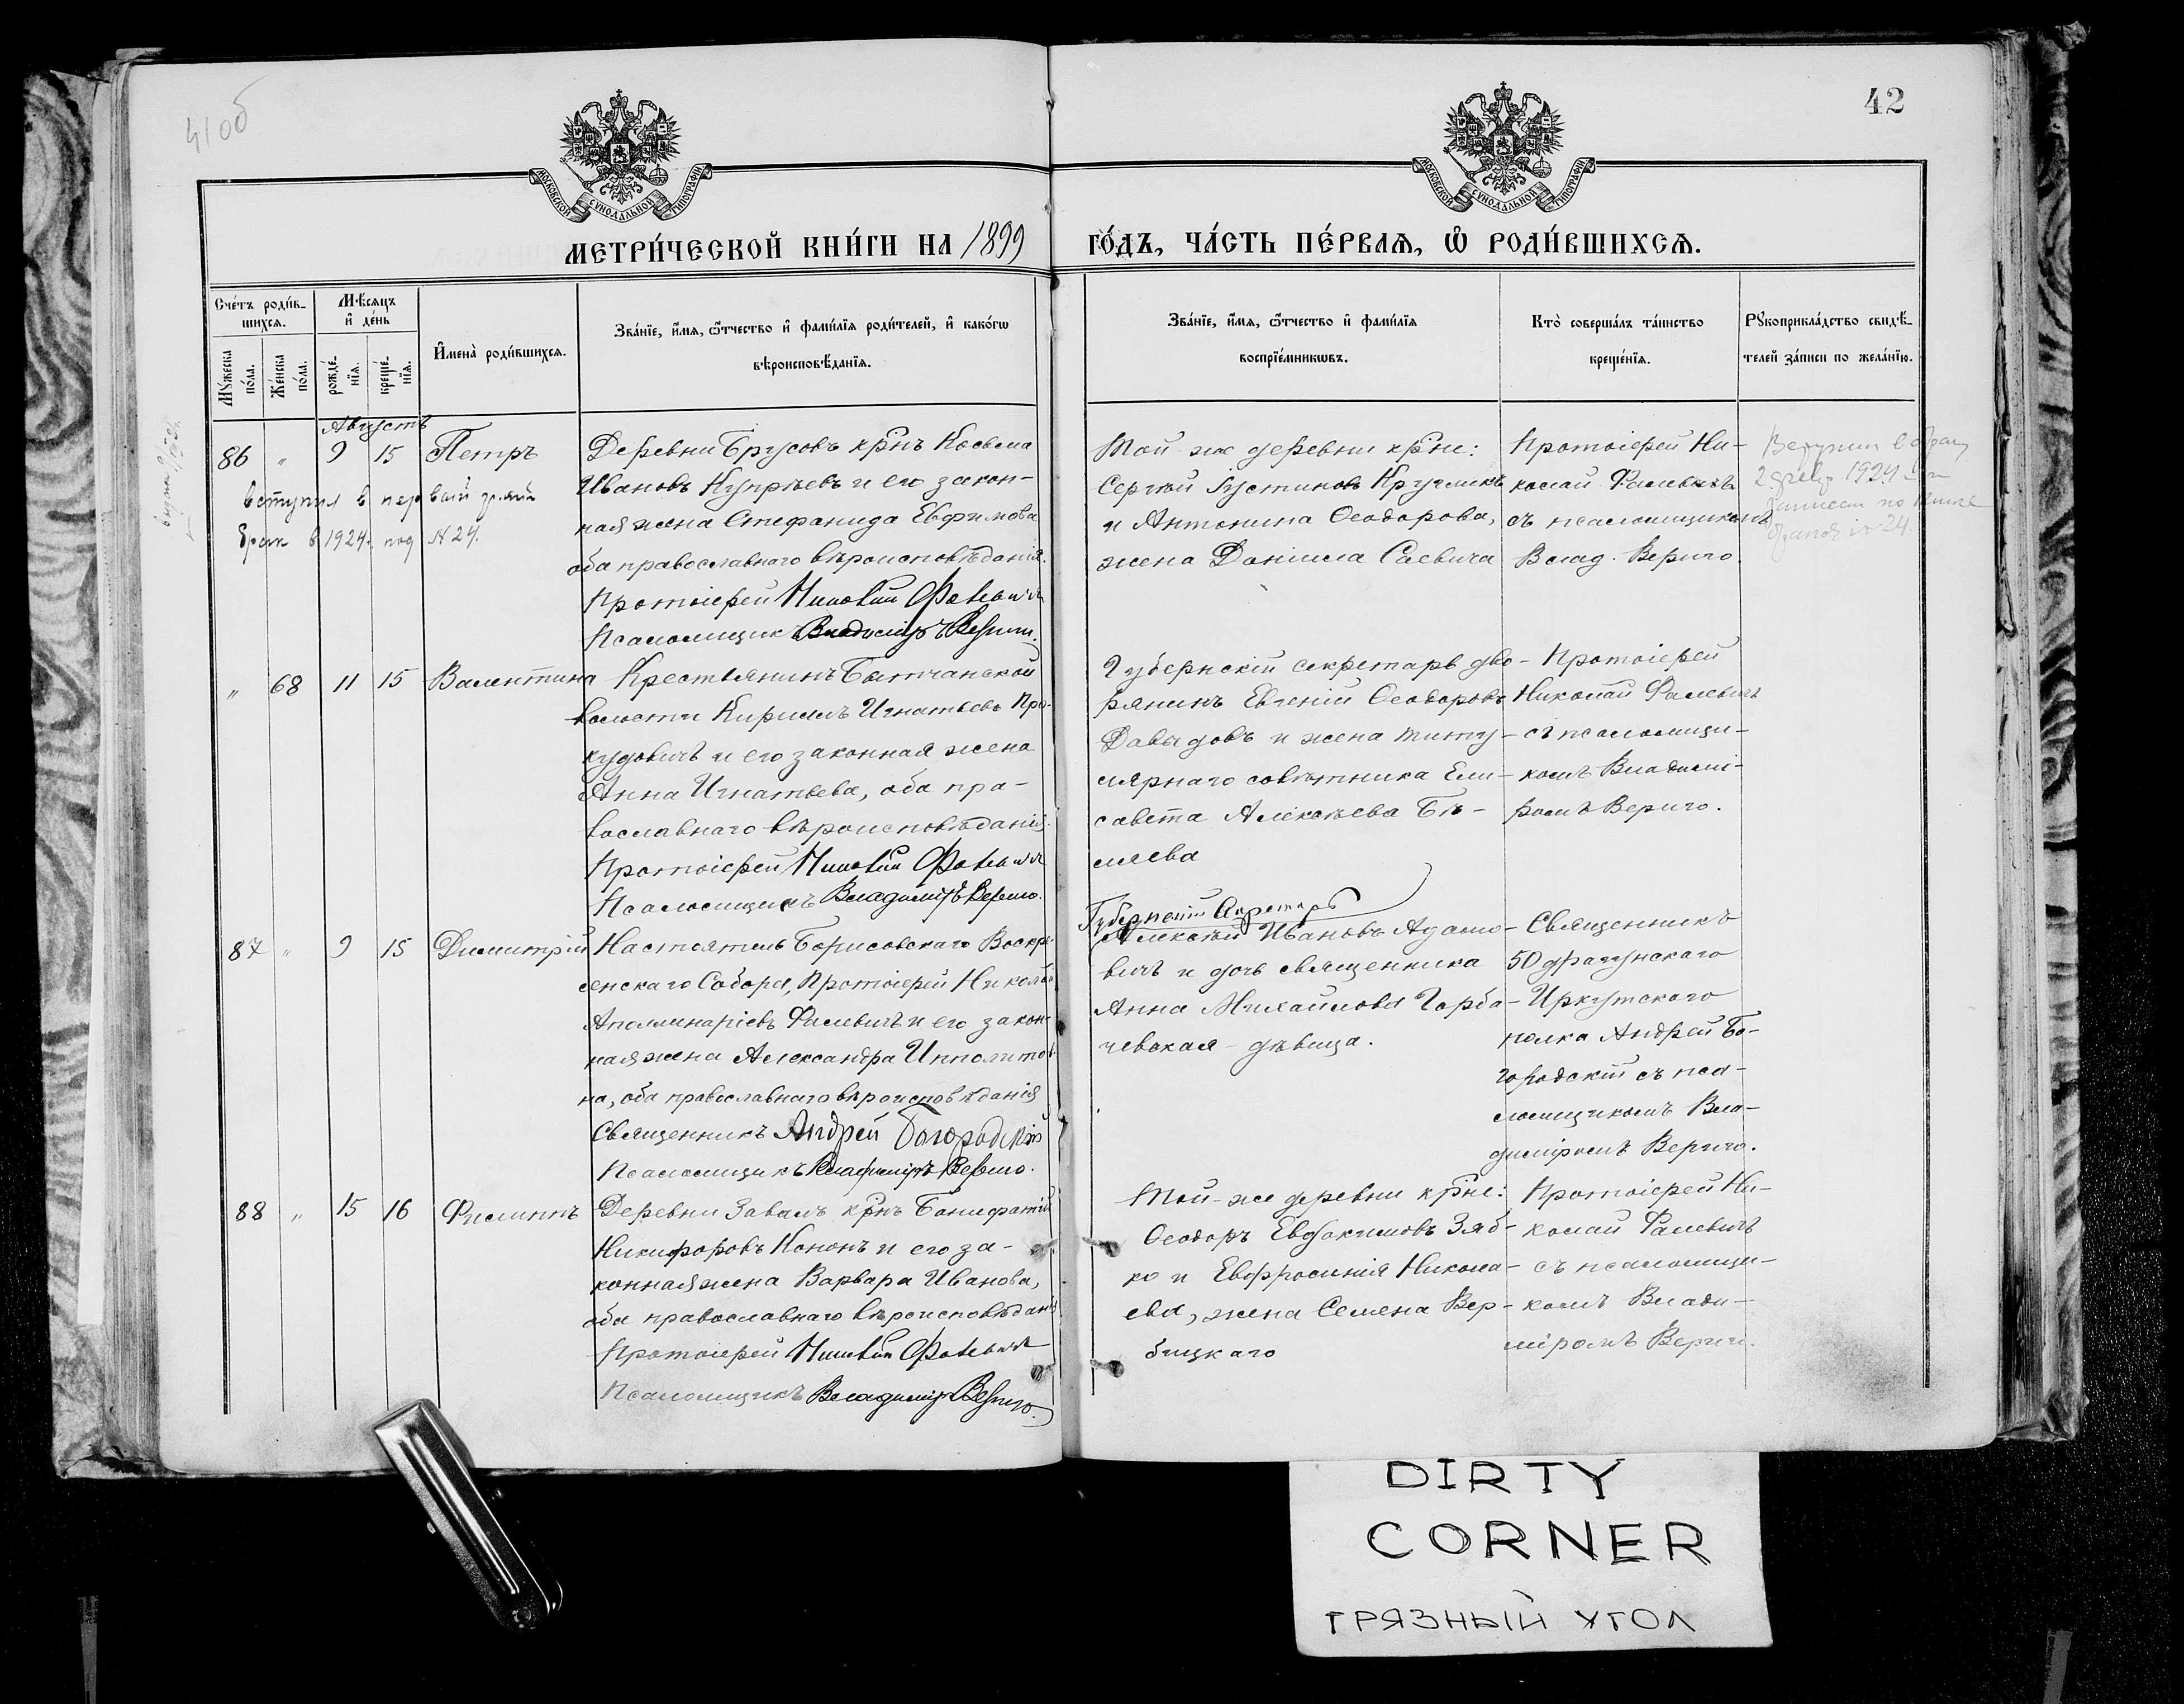 41об
42
МОСКОВСКОЙ СѴНОДАЛЬНОЙ ТИПОГРАФІИ
МОСКОВСКОЙ СѴНОДАЛЬНОЙ ТИПОГРАФІИ
МЕТРИ́ЧЕСКОЙ КНИ́ГИ НА 1899 ГО́ДЪ, ЧА́СТЬ ПЕ́РВАѦ, Ѡ҆ РОДИ́ВШИХСѦ.
Сче́тъ роди́в-
шихсѧ.
Мꙋ́жеска по́ла.
Же́нска по́ла.
Мѣ́сѧцъ
и҆ де́нь
рожде́-
нїѧ.
креще́-
нїѧ.
И҆мена̀ роди́вшихсѧ.
Зва́нїе, и҆́мѧ, ѻ҆́тчество и҆ фами́лїѧ роди́телей, и҆ како́гѡ
вѣроисповѣ́данїѧ.
Зва́нїе, и҆́мѧ, ѻ҆́тчество и҆ фами́лїѧ
воспрїе́мникѡвъ.
Кто̀ соверша́лъ та́инство
креще́нїѧ.
Рꙋкоприкла́дство свидѣ́-
телей за́писи по жела́нїю.
Августъ
86 " 9 15 Петръ
вступил в первый
брак в 1924 г. под № 24.
Деревни Брусовъ кр̃нъ Косьма
Ивановъ Купрѣевъ и его закон-
ная жена Стефанида Евфимова
оба православнаго вѣроисповѣданія.
Протоіерей Николай Фалевичъ
Псаломщикъ Владиміръ Вериго.
Той же деревни кр̃не:
Сергѣй Іустиновъ Кругликъ
и Антонина Ѳеодорова,
жена Даніила Саевича
Протоіерей Ни-
колай Фалевичъ
съ псаломщикомъ
Влад. Вериго.
Вступил в брак
2 февр 1924
записи по книге
№ 24.
" 68 11 15 Валентина
Крестьянинъ Бытчанской
волости Кириллъ Игнатьевъ Про-
кудовичъ и его законная жена
Анна Игнатьева, оба пра-
вославнаго вѣроисповѣданія.
Протоіерей Николай Фалевичъ
Псаломщикъ Владиміръ Вериго.
Губернскій секретарь дво-
рянинъ Евгеній Ѳеодоровъ
Давыдовъ и жена титу-
лярнаго совѣтника Ели-
савета Алексѣева Бѣ-
ляева
Протоіерей
Николай Фалевичъ
съ псаломщи-
комъ Владимі-
ромъ Вериго.
87 " 9 15 Димитрій
Настоятель Борисовскаго Воскре-
сенскаго Собора, Протоіерей Николай
Аполлинаріевъ Фалевичъ и его закон-
ная жена Александра Ипполитов-
на, оба православнаго вѣроисповѣданія
Священникъ Андрей Богородскій
Псаломщикъ Владиміръ Вериго.
Губернскій Секретарь
Алексѣй Ивановъ Адамо-
вичъ и дочь священника
Анна Михайлова Горба-
чевская - дѣвица.
Священникъ
50 драгунскаго
Иркутскаго
полка Андрей Бо-
городскій съ пса-
ломщикомъ Вла-
диміромъ Вериго.
88 " 15 16 Филиппъ
Деревни Завалъ кр̃нъ Бонифатій
Никифоровъ Кононъ и его за-
конная жена Варвара Иванова,
оба православнаго вѣроисповѣданія
Протоіерей Николай Фалевичъ
Псаломщикъ Владиміръ Вериго.
Той-же деревни кр̃не:
Ѳеодоръ Евдокимовъ Зяб-
ко и Евфросинія Никола-
ева, жена Семена Вер-
бицкаго
Протоіерей Ни-
колай Фалевичъ
съ псаломщи-
комъ Влади-
міромъ Вериго.
DIRTY
CORNER
ГРЯЗНЫЙ УГОЛ